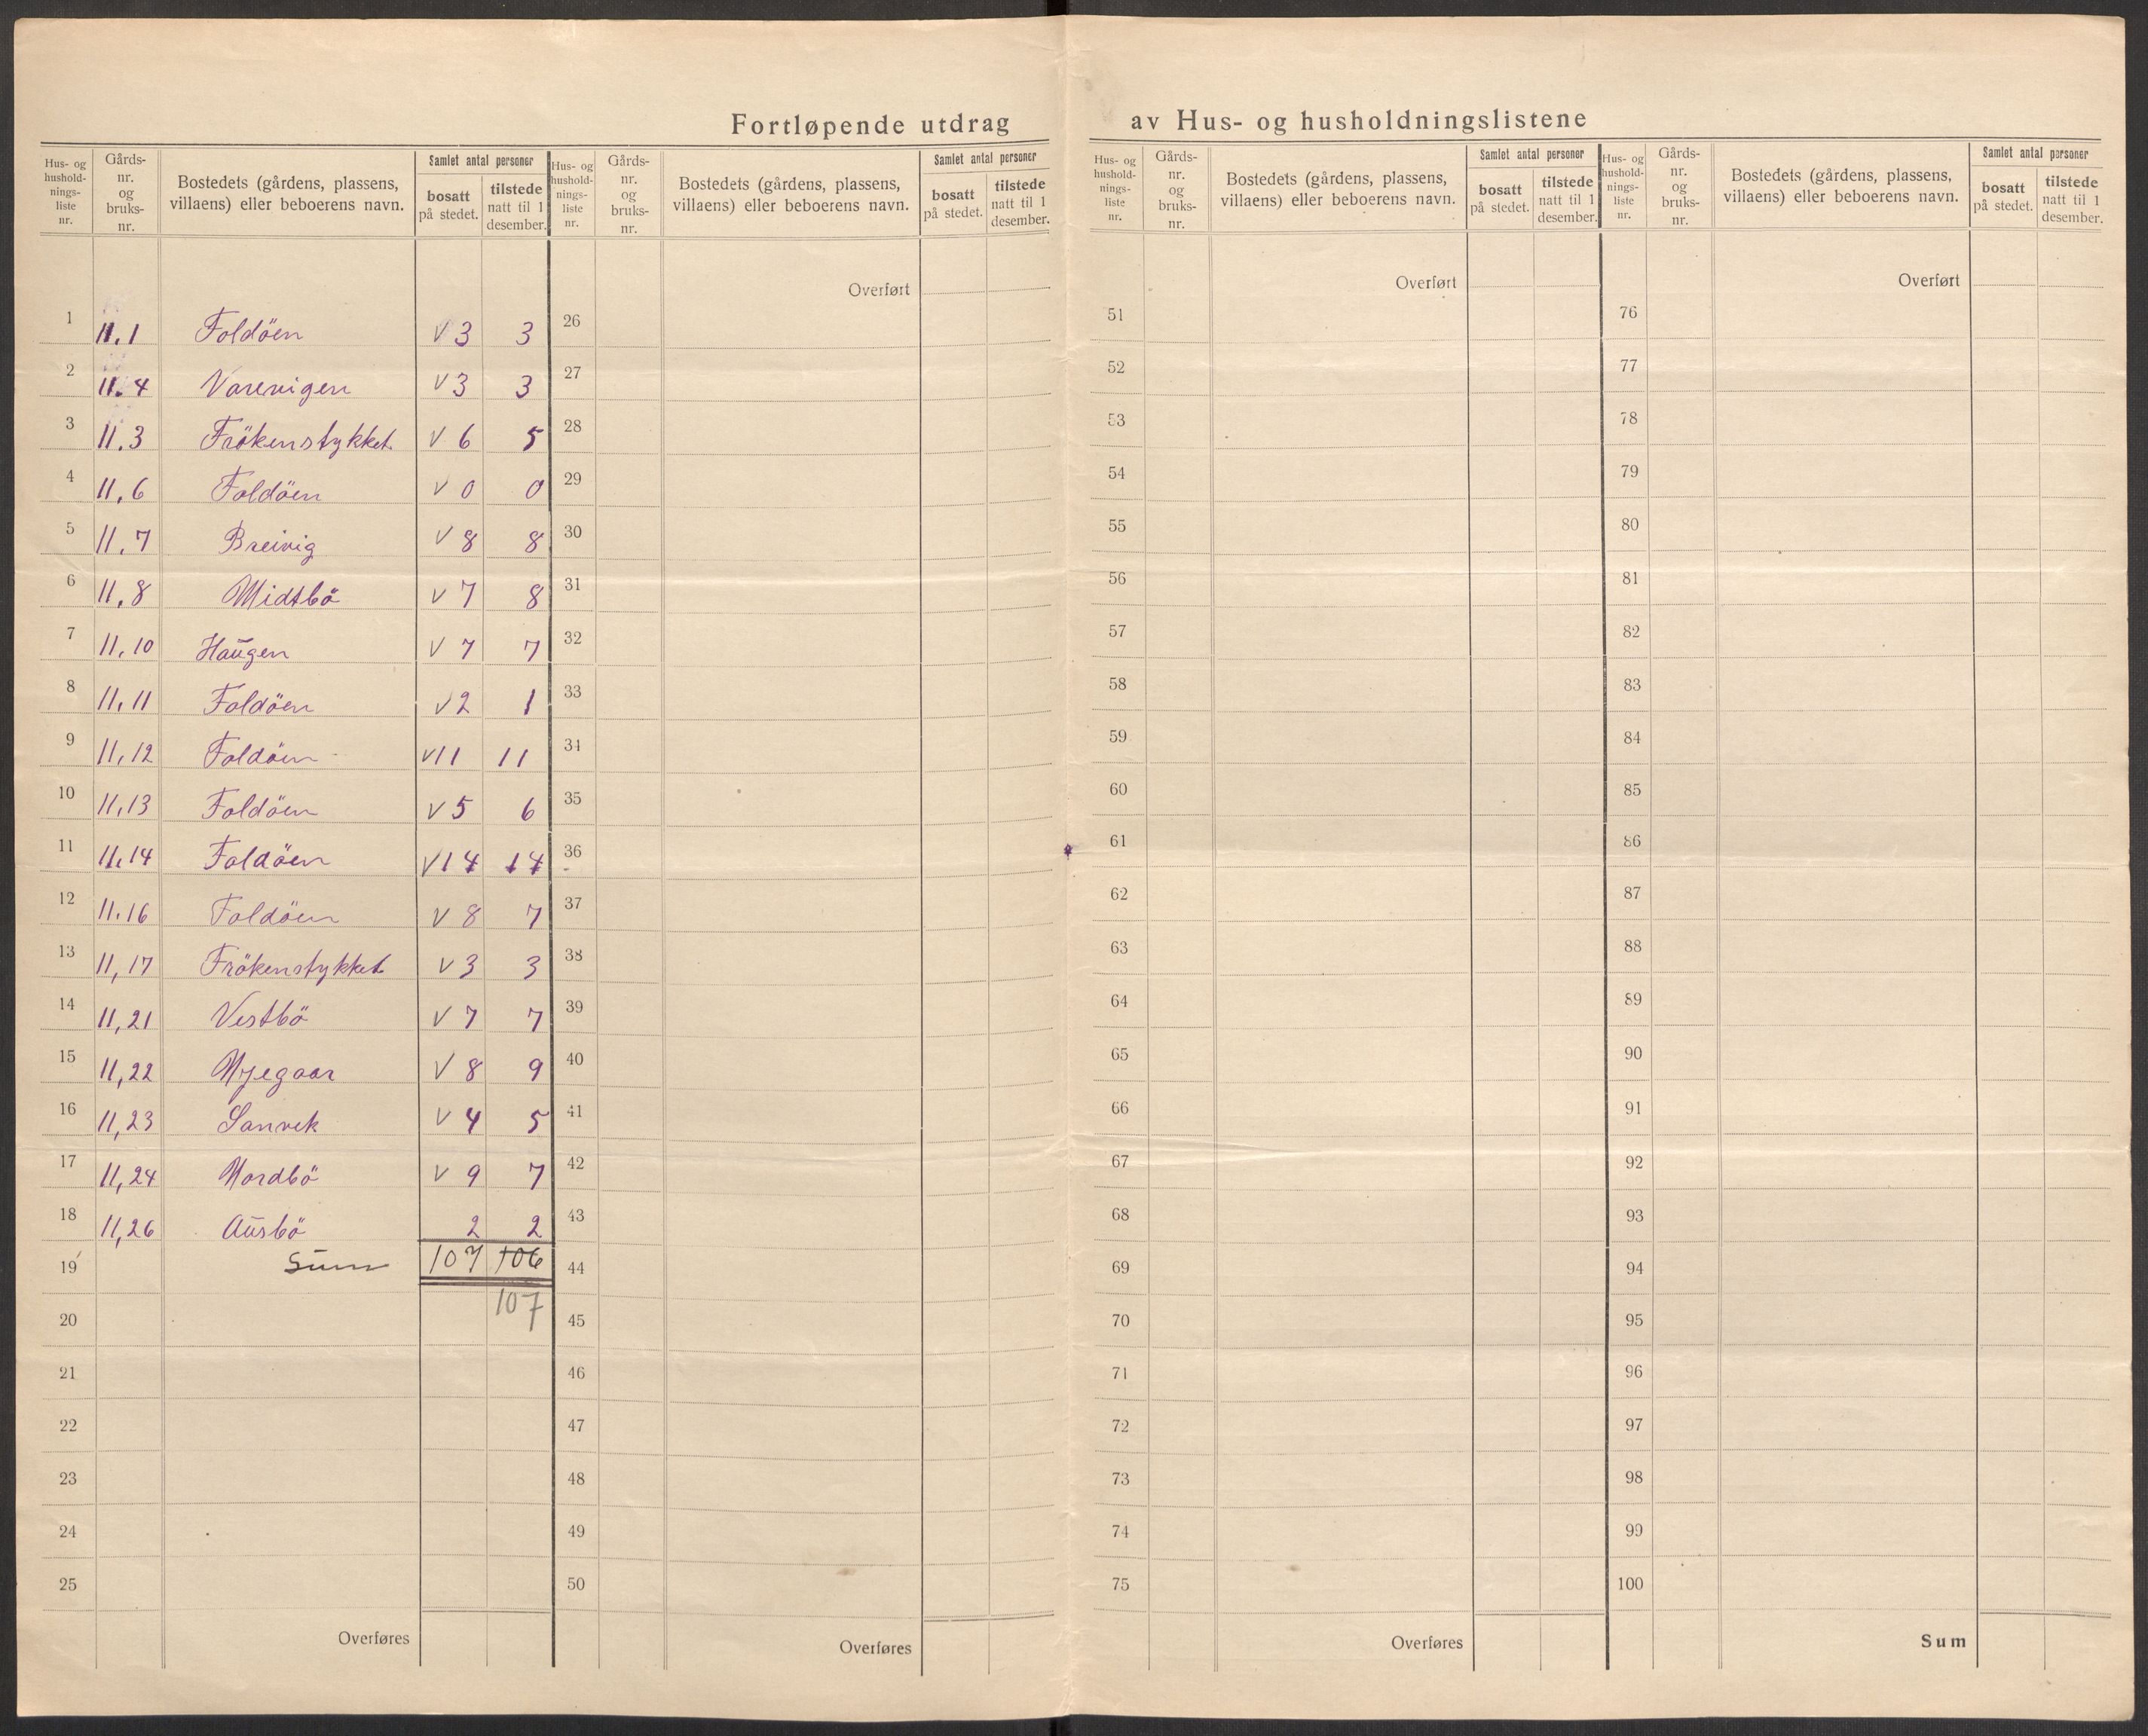 Fortløpende utdrag av Hus- og husholdningslistene
Hus- og hushold- nings- liste nr. Gårds- nr. og bruks- nr. Bostedets (gårdens, plassens, villaens) eller beboerens navn. Samlet antal personer bosatt på stedet. tilstede natt til 1 desember.
Hus- og hushold- nings- liste nr. Gårds- nr. og bruks- nr. Bostedets (gårdens, plassens, villaens) eller beboerens navn. Samlet antal personer bosatt på stedet. tilstede natt til 1 desember.
Hus- og hushold- nings- liste nr. Gårds- nr. og bruks- nr. Bostedets (gårdens, plassens, villaens) eller beboerens navn. Samlet antal personer bosatt på stedet. tilstede natt til 1 desember.
Hus- og hushold- nings- liste nr. Gårds- nr. og bruks- nr. Bostedets (gårdens, plassens, villaens) eller beboerens navn. Samlet antal personer bosatt på stedet. tilstede natt til 1 desember.
Overført Overført Overført
1 11.1 Foldöen V 3 3 26 51 76
2 11.4 Varevigen V 3 3 27 52 77
3 11.3 Frökenstykket. V 6 5 28 53 78
4 11.6 Foldöen V 0 0 29 54 79
5 11.7 Breivig V 8 8 30 55 80
6 11.8 Midtbö V 7 8 31 56 81
7 11.10 Haugen V 7 7 32 57 82
8 11.11 Foldöen V 2 1 33 58 83
9 11,12 Foldöen V 11 11 34 59 84
10 11,13 Foldöen V 5 6 35 60 85
11 11.14 Foldöen V 14 14 36 61 86
12 11.16 Foldöen V 8 7 37 62 87
13 11,17 Frökenstykket V 3 3 38 63 88
14 11,21 Vestbö V 7 7 39 64 89
15 11,22 Myegaar V 8 9 40 65 90
16 11,23 Sanvek V 4 5 41 66 91
17 11,24 Nordbö V 9 7 42 67 92
18 11,26 Ausbö 2 2 43 68 93
19 Sum 107 106 44 69 94
20 107 45 70 95
21 46 71 96
22 47 72 97
23 48 73 98
24 49 74 99
25 50 75 100
Overføres Overføres Overføres Sum